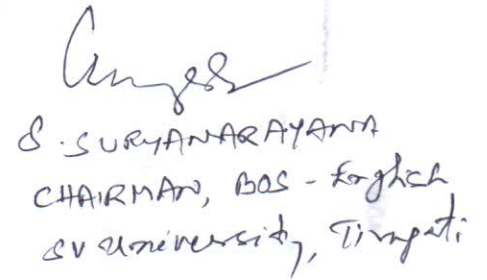 S. SURYANARAYANA
CHAIRMAN, BOS - English
SV University, Tirupati